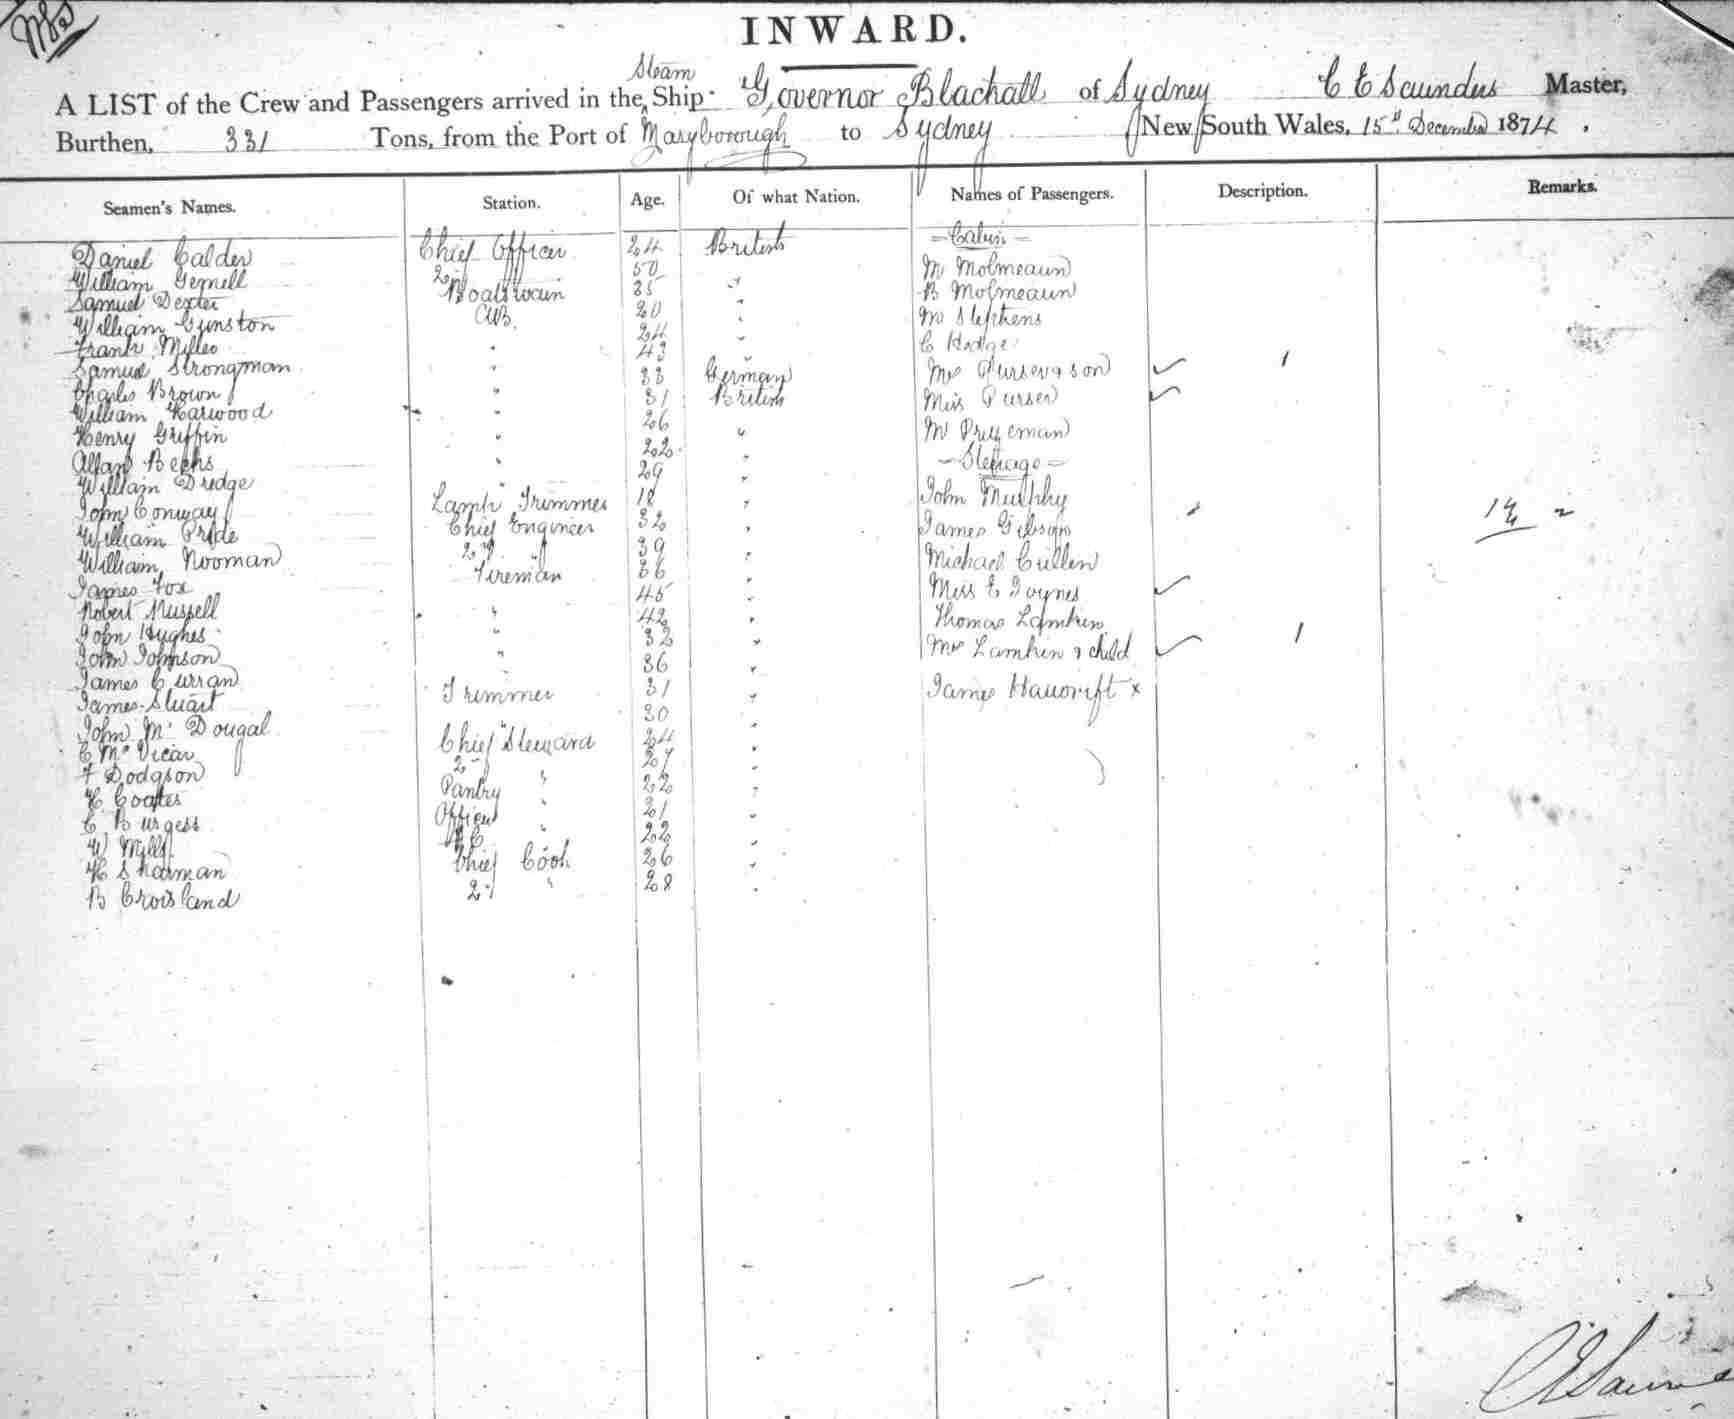 INWARD.
A LIST of the Crew and Passengers arrived in the Steam Ship Governor Blackall of Sydney C E Saunders Master,
Burthen, 331 Tons, from the Port of Maryborough to Sydney New South Wales, 15th December 1874.
Seamen's Names. Station. Age. Of what Nation. Names of Passengers. Description. Remarks.
Daniel Calder Chief Officer 24 British — Cabin —
William Gemell 2nd " 50 " Mr Molmeaun
Samuel Dexter Boatswain 35 " B Molmeaun
William Gunston AB. 20 " Mr Stephens
Frank Miller " 24 " C Hodge
Samuel Strongman " 43 "
Charles Brown " 33 German Mrs & son 1
William Harwood " 31 British Miss Purser
Henry Griffin " 26 " Mr
Allan " 22 " — Steerage —
William Dredge " 29 " John Murphy
John Conway Lamp Trimmer 18 " James Gibson
William Pride Chief Engineer 32 " Michael Cullen
William Nooman 2nd " 39 " Miss E
James Fox Fireman 36 " Thomas Lamkin
Robert Russell " 45 " Mrs Lamkin & child 1
John Hughes " 42 " James x
John Johnson " 32 "
James Curran " 36 "
James Stuart Trimmer 31 "
John Mc Dougal " 30 "
C Mc Vicar Chief Steward 24 "
F Dodgson 2nd " 27 "
H Coates Pantry " 22 "
C Burgess Officers " 21 "
W Mills 22 "
H Shearman Chief Cook 26 "
B Croisland 2nd " 28 "